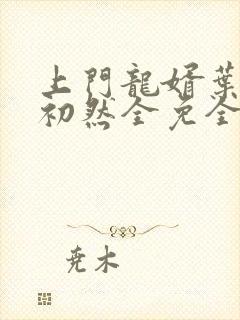 上門龍婿葉
初然全免全
尭木